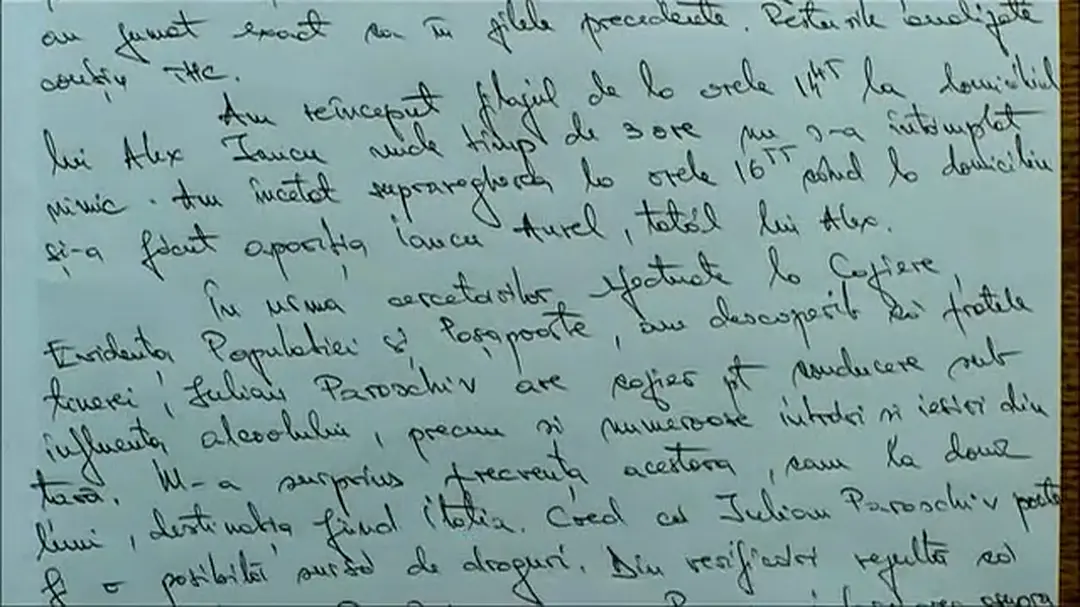 au fumat exact ca în zilele precedente. Resturile analizate
conțin THC.
Am reînceput filajul de la orele 14⁴⁵ la domiciliul
lui Alex Iancu unde timp de 3 ore nu s-a întîmplat
nimic. Am încetat supravegherea la orele 16⁵⁵ când la domiciliu
și-a făcut apariția Iancu Aurel, tatăl lui Alex.
În urma cercetărilor efectuate la Caziere,
Evidența Populației și Pașapoarte, am descoperit că fratele
tinerei, Iulian Paroschiv are cazier pt conducere sub
influența alcoolului, precum și numeroase intrări și ieșiri din
țară. M-a surprins frecvența acestora, cam la două
luni, destinația fiind Italia. Cred că Iulian Paroschiv poate
fi o posibilă sursă de droguri. Din verificări rezultă că
asupra